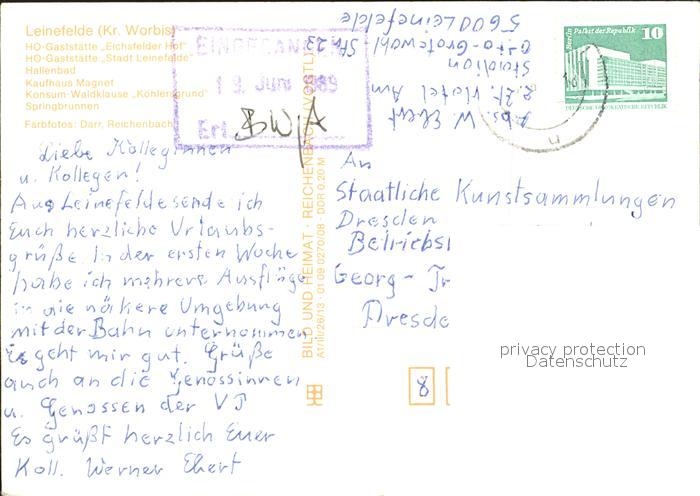 Leinefelde (Kr. Worbis)
HO-Gaststätte „Eichsfelder Hof"
HO-Gaststätte „Stadt Leinefelde"
Hallenbad
Kaufhaus Magnet
Konsum-Waldklause „Köhlersgrund"
Springbrunnen
Farbfotos: Darr, Reichenbach
EINGEGANGEN
19. Juni 1989
Erl.
BWA
Liebe Kolleginnen
u. Kollegen!
Aus Leinefelde sende ich
Euch herzliche Urlaubs-
grüße. In der ersten Woche
habe ich mehrere Ausflüge
in die nähere Umgebung
mit der Bahn unternommen
Es geht mir gut. Grüße
auch an die Genossinnen
u. Genossen der VJ
Es grüßt herzlich Euer
Koll. Werner Ebert
BILD UND HEIMAT · REICHENBACH (VOGTL)
A1/III/26/13 · 01 09 0270/08 · DDR 0,20 M
Abs. W. Ebert
z. Zt. Hotel Am
Stadion
Otto-Grotewohl Str. 23
5600 Leinefelde
Berlin Palast der Republik 10
DEUTSCHE DEMOKRATISCHE REPUBLIK
An
Staatliche Kunstsammlungen
Dresden
Betriebs
Georg-Tr
Dresde
8
privacy protection
Datenschutz